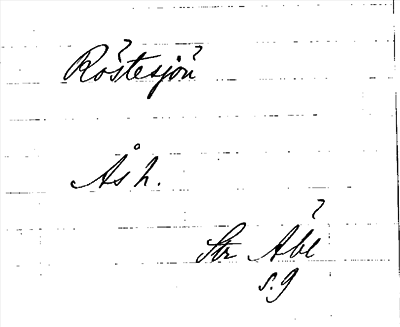 Röstesjön
Ås h.
Str Åbl
s. 9